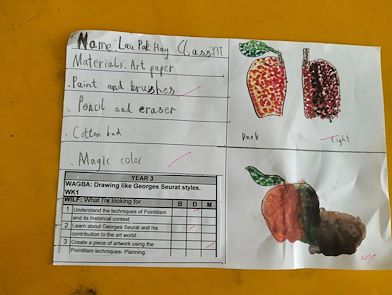 Name: Lau Pok Hay Class Y3T
Materials: Art paper
. Paint and brushes
. Pencil and eraser
. Cotton bud
. Magic color
Dark
Light
YEAR 3
WAGBA: Drawing like Georges Seurat styles.
WK1
WILF: What I'm looking for B D M
1 Understand the techniques of Pointillism
and its historical context
2 Learn about Georges Seurat and his
contribution to the art world.
3 Create a piece of artwork using the
Pointillism techniques- Planning